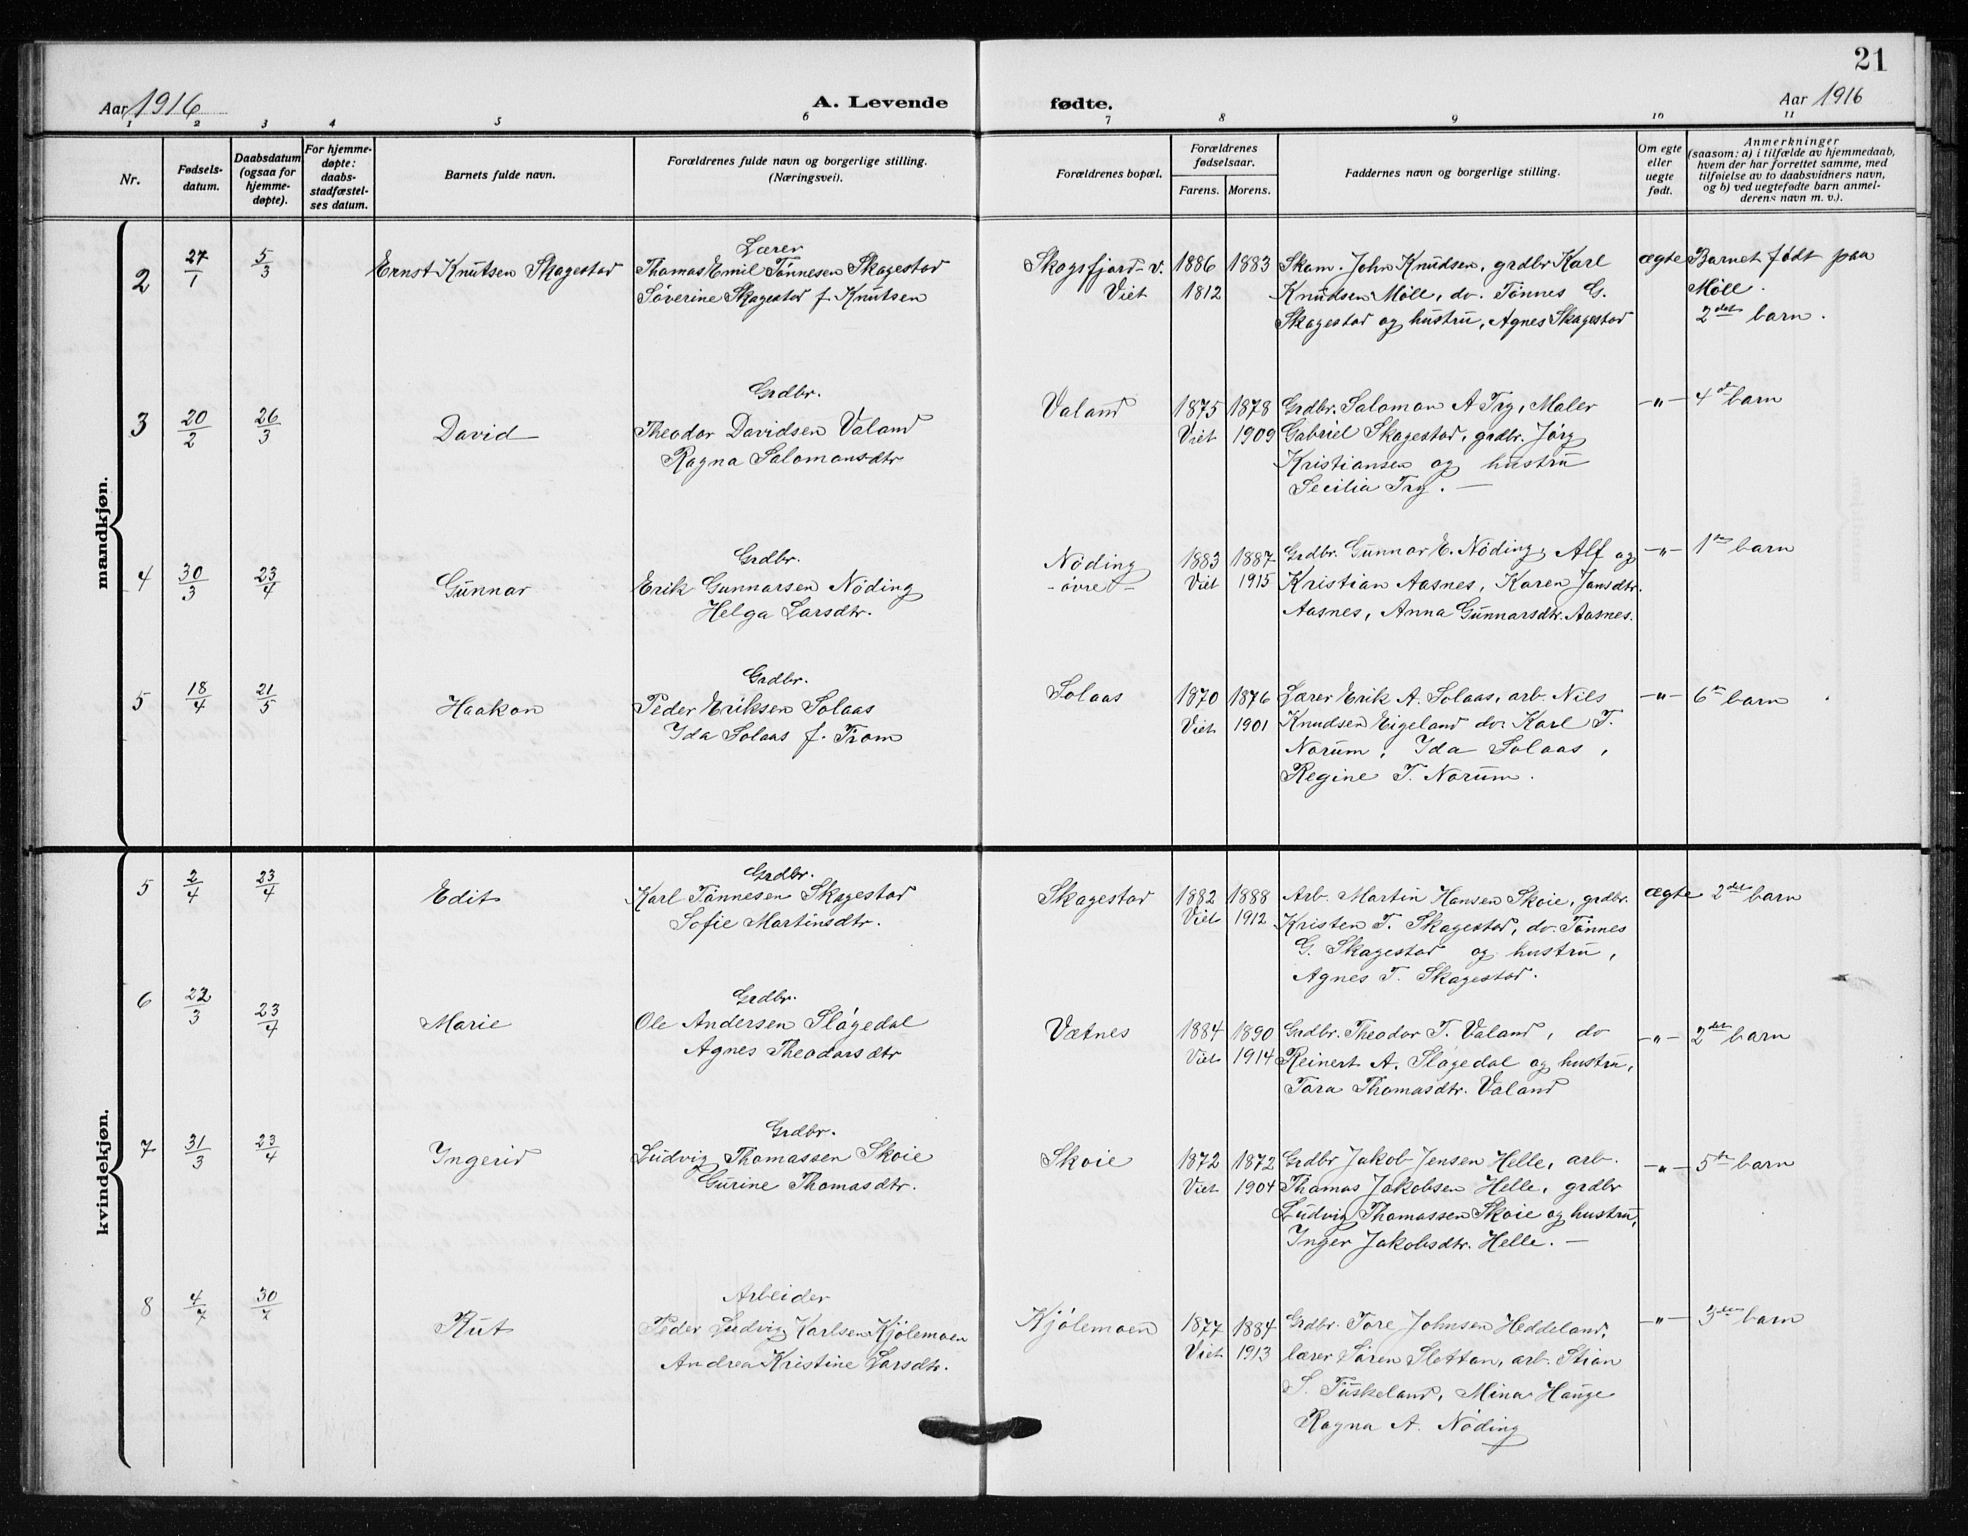 21
Aar 1916
A. Levende fødte.
Aar 1916
1 2 3 4 5 6 7 8 9 10 11
Nr.
Fødsels-
datum.
Daabsdatum
(ogsaa for
hjemme-
døpte).
For hjemme-
døpte:
daabs-
stadfæstel-
ses datum.
Barnets fulde navn.
Forældrenes fulde navn og borgerlige stilling.
(Næringsvei).
Forældrenes bopæl.
Forældrenes
fødselsaar.
Farens. Morens.
Faddernes navn og borgerlige stilling.
Om egte
eller
uegte
født.
Anmerkninger
(saasom: a) i tilfælde av hjemmedaab,
hvem der har forrettet samme, med
tilføielse av to daabsvidners navn,
og b) ved uegtefødte barn anmel-
derens navn m. v.).
mandkjøn.
2 27/1 5/3 Ernst Knutsen Skagestad
Lærer
Thomas Emil Tönnesen Skagestad
Söverine Skagestad f. Knutsen
Skogsfjord-v.
Viet
1886 1883
1812
Skom. John Knudsen, grdbr Karl
Knudsen Möll, do. Tönnes G.
Skagestad og hustru, Agnes Skagestad
ægte
Barnet födt paa
Möll.
2det barn.
3 20/2 26/3 David
Grdbr.
Theodor Davidsen Valand
Ragna Salomonsdtr
Valand
1875 1878
Viet 1909
Grdbr. Salomon A Try, Maler
Gabriel Skagestad, grdbr. Jörg
Kristiansen og hustru
Secilia Try. —
-"- 4de barn
4 30/3 23/4 Gunnar
Grdbr.
Erik Gunnarsen Nöding
Helga Larsdtr.
Nöding
- övre -
1883 1887
Viet 1915
Grdbr. Gunnar E. Nöding, Alf og
Kristian Aasnes, Karen Jansdtr.
Aasnes, Anna Gunnarsdtr. Aasnes.
-"- 1ste barn
5 18/4 21/5 Haakon
Grdbr.
Peder Eriksen Solaas
Ida Solaas f. Trom
Solaas
1870 1876
Viet 1901
Lærer Erik A. Solaas, arb. Nils
Knudsen Eigeland do. Karl T.
Norum, Ida Solaas,
Regine T. Norum.
-"- 6te barn
kvindekjøn.
5 2/4 23/4 Edit
Grdbr.
Karl Tönnesen Skagestad
Sofie Martinsdtr.
Skagestad
1882 1888
Viet 1912
Arb. Martin Hansen Skoie, grdbr.
Kristen T. Skagestad, do. Tönnes
G. Skagestad og hustru,
Agnes T. Skagestad.
ægte 2det barn
6 22/3 23/4 Marie
Grdbr.
Ole Andersen Slögedal
Agnes Theodorsdtr
Vætnes
1884 1890
Viet 1914
Grdbr. Theodor T. Valand, do
Reinert A. Slögedal og hustru,
Tora Thomasdtr. Valand
-"- 2det barn
7 31/3 23/4 Ingerid
Grdbr.
Ludvig Thomassen Skoie
Gurine Thomasdtr.
Skoie
1872 1872
Viet 1904
Grdbr Jakob Jensen Helle, arb.
Thomas Jakobsen Helle, grdbr
Ludvig Thomassen Skoie og hustru,
Inger Jakobsdtr. Helle. —
-"- 5te barn
8 4/7 30/7 Rut
Arbeider
Peder Ludvig Karlsen Kjölemoen
Andrea Kristine Larsdtr.
Kjölemoen
1877 1884
Viet 1913
Grdbr. Tore Johnsen Heddeland,
lærer Sören Slettan, arb. Stian
S. Tuskeland, Mina Hauge
Ragna A. Nöding
-"- 3die barn